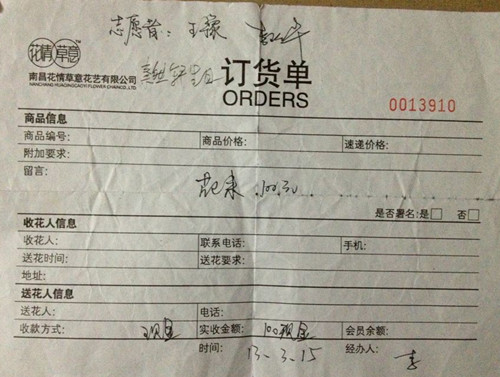 志愿者：王蓉
花情草意™
南昌花情草意花艺有限公司
NANCHANG HUAQINGCAOYI FLOWER CHAINCO.,LTD
订货单
ORDERS
0013910
商品信息
商品编号: 商品价格: 速递价格:
附加要求:
留言:
花束 100元
是否署名:是□ 否□
收花人信息
收花人: 联系电话: 手机:
送花时间: 送花要求:
地址:
送花人信息
送花人: 电话:
收款方式: 现金 实收金额: 100现金 会员余额:
时间: 13-3-15 经办人: 李